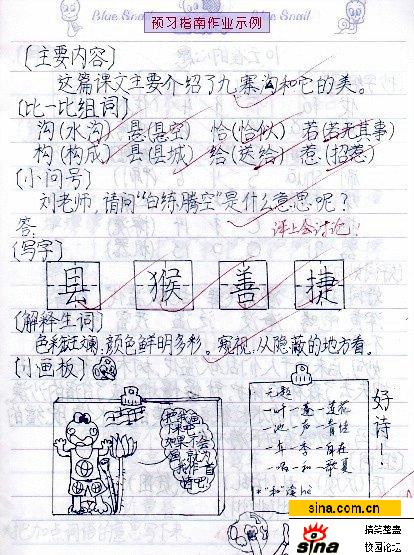 预习指南作业示例
Blue Snail
Blue Snail
(主要内容)
这篇课文主要介绍了九寨沟和它的美。
(比一比组词)
沟(水沟) 悬(悬空) 恰(恰似) 若(若无其事)
构(构成) 县(县城) 给(送给) 惹(招惹)
(小问号)
刘老师,请问“白练腾空”是什么意思呢?
答:
课上会讨论!
(写字)
县 猴 善 捷
(解释生词)
色彩斑斓,颜色鲜明多彩。窥视,从隐蔽的地方看。
(小画板)
把你画
下来吧,
如果不会
画,就为
我作一首
诗吧!
无题
一叶一蓬一莲花
一池一声一青蛙
一年一季一自在
一唱一和一华夏
“和”读hè
好诗!
sina.com.cn
sina
搞笑整蛊
校园论坛